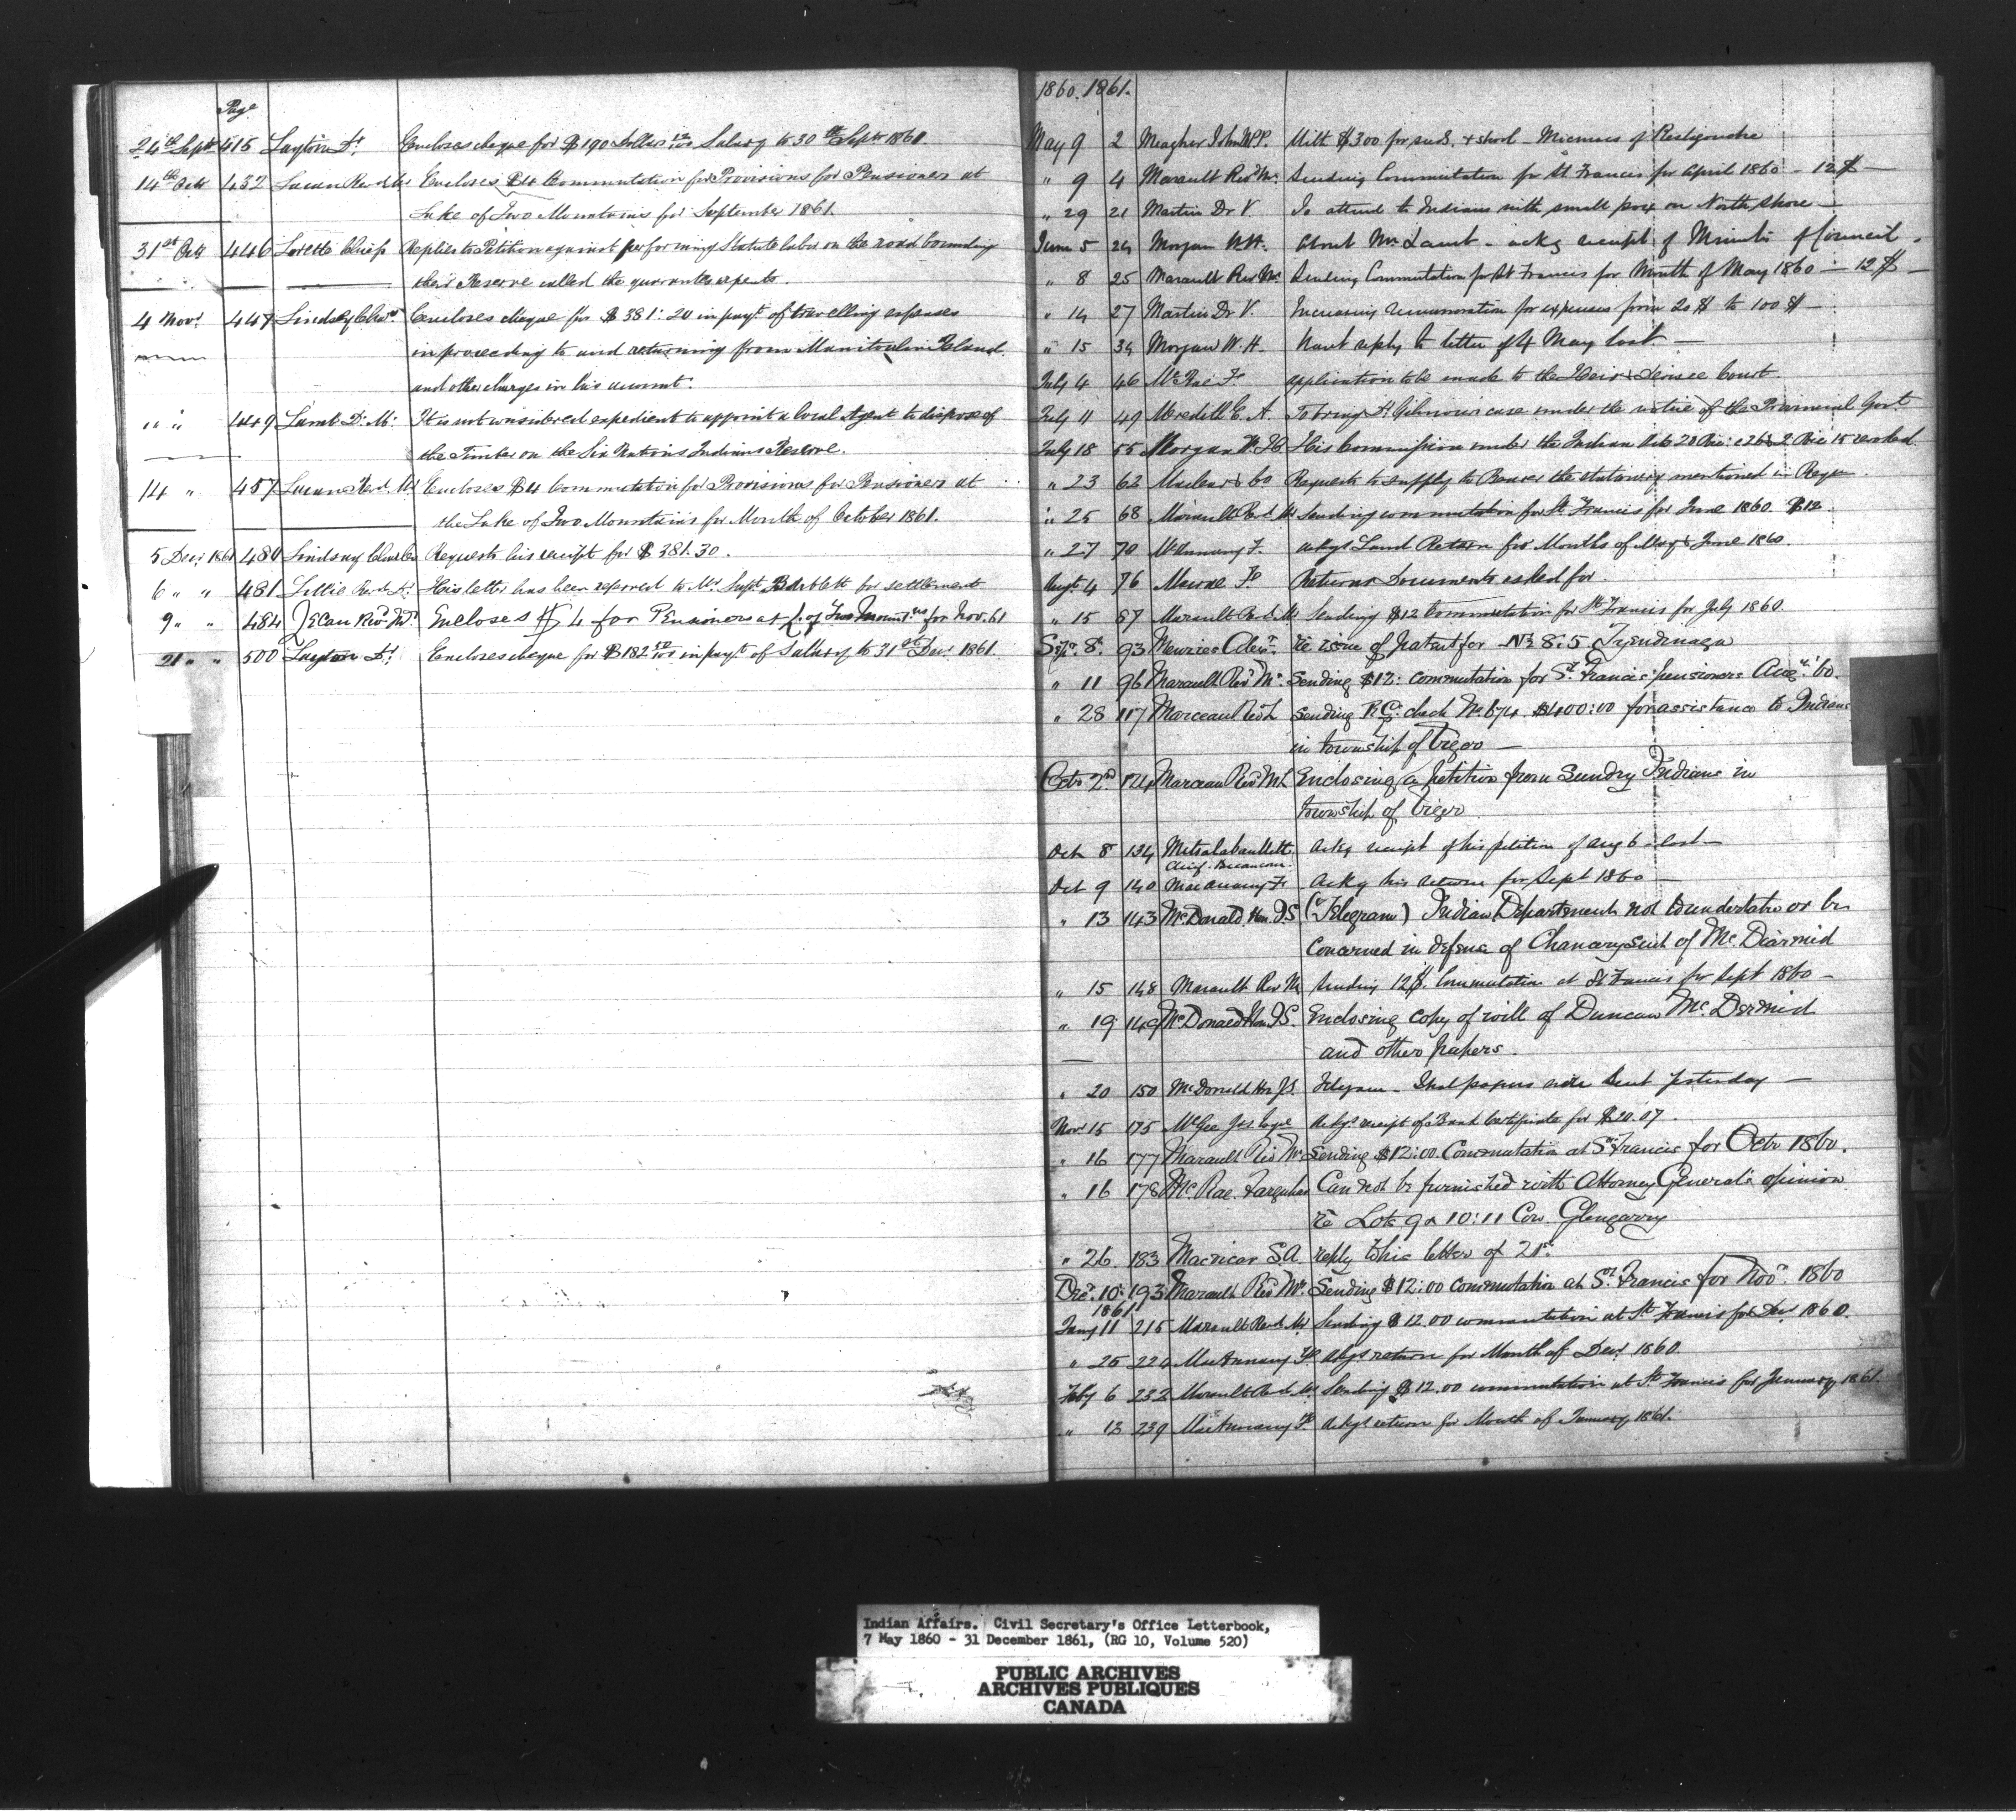 Page
24th Septr 415 Layton Dr. Encloses cheque for $190 Dollars Salary to 30th Septr 1861.
14th Octr 432 Encloses $4 Commutation for Provisions for Pensioners at
Lake of Two Mountains for September 1861.
31st Octr 446 Lorette Chiefs Replies to Petition against performing Statute labor on the road bounding
their Reserve called the quarante arpents.
4 Novr. 447 Lindsay Chas. Encloses cheque for $381:20 in payt. of travelling expenses
in proceeding to and returning from Manitoulin Island
and other charges in his account.
" " 449 Lamb D. M: It is not considered expedient to appoint a local Agent to dispose of
the Timber on the Six Nations Indians Reserve.
14 " 457 Encloses $4 Commutation for Provisions for Pensioners at
the Lake of Two Mountains for Month of October 1861.
5 Decr 1861 480 Lindsay Charles Requests his receipt for $381.30.
6 " " 481 Lillie Revd. A. His letter has been referred to Mr. Supt. Bartlett for settlement
9 " " 484 Encloses $4 for Pensioners at L. of Two Mountns for Nov. 61
21 " " 500 Layton Dr. Encloses cheque for $182 in payt. of Salary to 31st Decr. 1861.
1860. 1861.
May 9 2 Meagher John MPP. With $300 for seed, & school - Micmacs of Restigouche
" 9 4 Marault Revd Mr. Sending Commutation for St Francis for April 1860 - 12$ —
" 29 21 Martin Dr V. To attend to Indians with small pox on North shore —
June 5 24 Morgan W.H. About Mr. Lamb - ackg receipt of Minute of Council -
" 8 25 Marault Rev Mr. Sending Commutation for St Francis for Month of May 1860 — 12$ —
" 14 27 Martin Dr. V. Increasing remuneration for expenses from 20$ to 100$ —
" 15 34 Morgan W. H. Want reply to letter of 4 May last. —
July 4 46 McRae F. application to be made to the Heir & Devisee Court.
July 11 49 Meredith E. A. To bring A. Gilmour's case under the notice of the Provincial Govt.
July 18 55 Morgan W. H. His Commission under the Indian Acts revoked.
" 23 62 Maclear & Co Requests to supply to Bearer the stationery mentioned in
" 25 68 Marault Revd. M Sending commutation for St. Francis for June 1860. $12.
" 27 70 McAnnany F. ackgs Land Return for Months of May & June 1860.
Augt. 4 76 Returns Documents asked for.
" 15 87 Marault Revd. M Sending $12 Commutation for St Francis for July 1860.
Sepr. 8. 93 Menzies Alexr. re issue of Patent for No 8:5 Tyendinaga
" 11 96 Marault Revd Mr. Sending $12: commutation for St. Francis' pensioners Augt. '60.
" 28 117 Marceau Revd L Sending check No. 674 $400:00 for assistance to Indians
in township of Viger —
Octr 2nd 124 Marceau Revd Mr L Enclosing a petition from Sundry Indians in
township of Viger
Oct 8 134 Ackg receipt of his petition of Aug 6 last —
Chief. Becancour.
Oct 9 140 MacAnnany F. Ackg his return for Sept 1860 —
" 13 143 McDonald. Hon. J.S (Telegram) Indian Department not to undertake or be
concerned in defense of Chancery suit of McDiarmid
" 15 148 Marault Rev M Sending 12$. Commutation at St Francis for Sept 1860 —
" 19 149 McDonald Hon. J.S. Enclosing copy of will of Duncan McDermid
and other papers.
" 20 150 McDonald Hon J.S. Telegram - that papers were sent yesterday —
Novr 15 175 McGee Jas Esqre Ackgs receipt of Bank Certificate for $20.07.
" 16 177 Marault Revd Mr. Sending $12:00 Commutation at St Francis for Octr 1860.
" 16 178 McRae. Farquhar Can not be furnished with Attorney General's opinion
re Lots 9 & 10:11 Con. Glengarry
" 26 183 Macvicar S.A. reply to his letter of 21st.
Decr. 10: 193 Marault Revd Mr. Sending $12:00 commutation at St. Francis for Novr. 1860
1861
Jany 11 215 Marault Revd. Mr Sending $12.00 commutation at St Francis for Decr. 1860.
" 25 224 MacAnnany F. Ackgs return for Month of Decr. 1860.
Feby 6 232 Marault Revd. M. Sending $12.00 commutation at St. Francis for January 1861.
" 13 239 MacAnnany F. Ackgs return for Month of January 1861.
Indian Affairs. Civil Secretary's Office Letterbook,
7 May 1860 - 31 December 1861, (RG 10, Volume 520)
PUBLIC ARCHIVES
ARCHIVES PUBLIQUES
CANADA